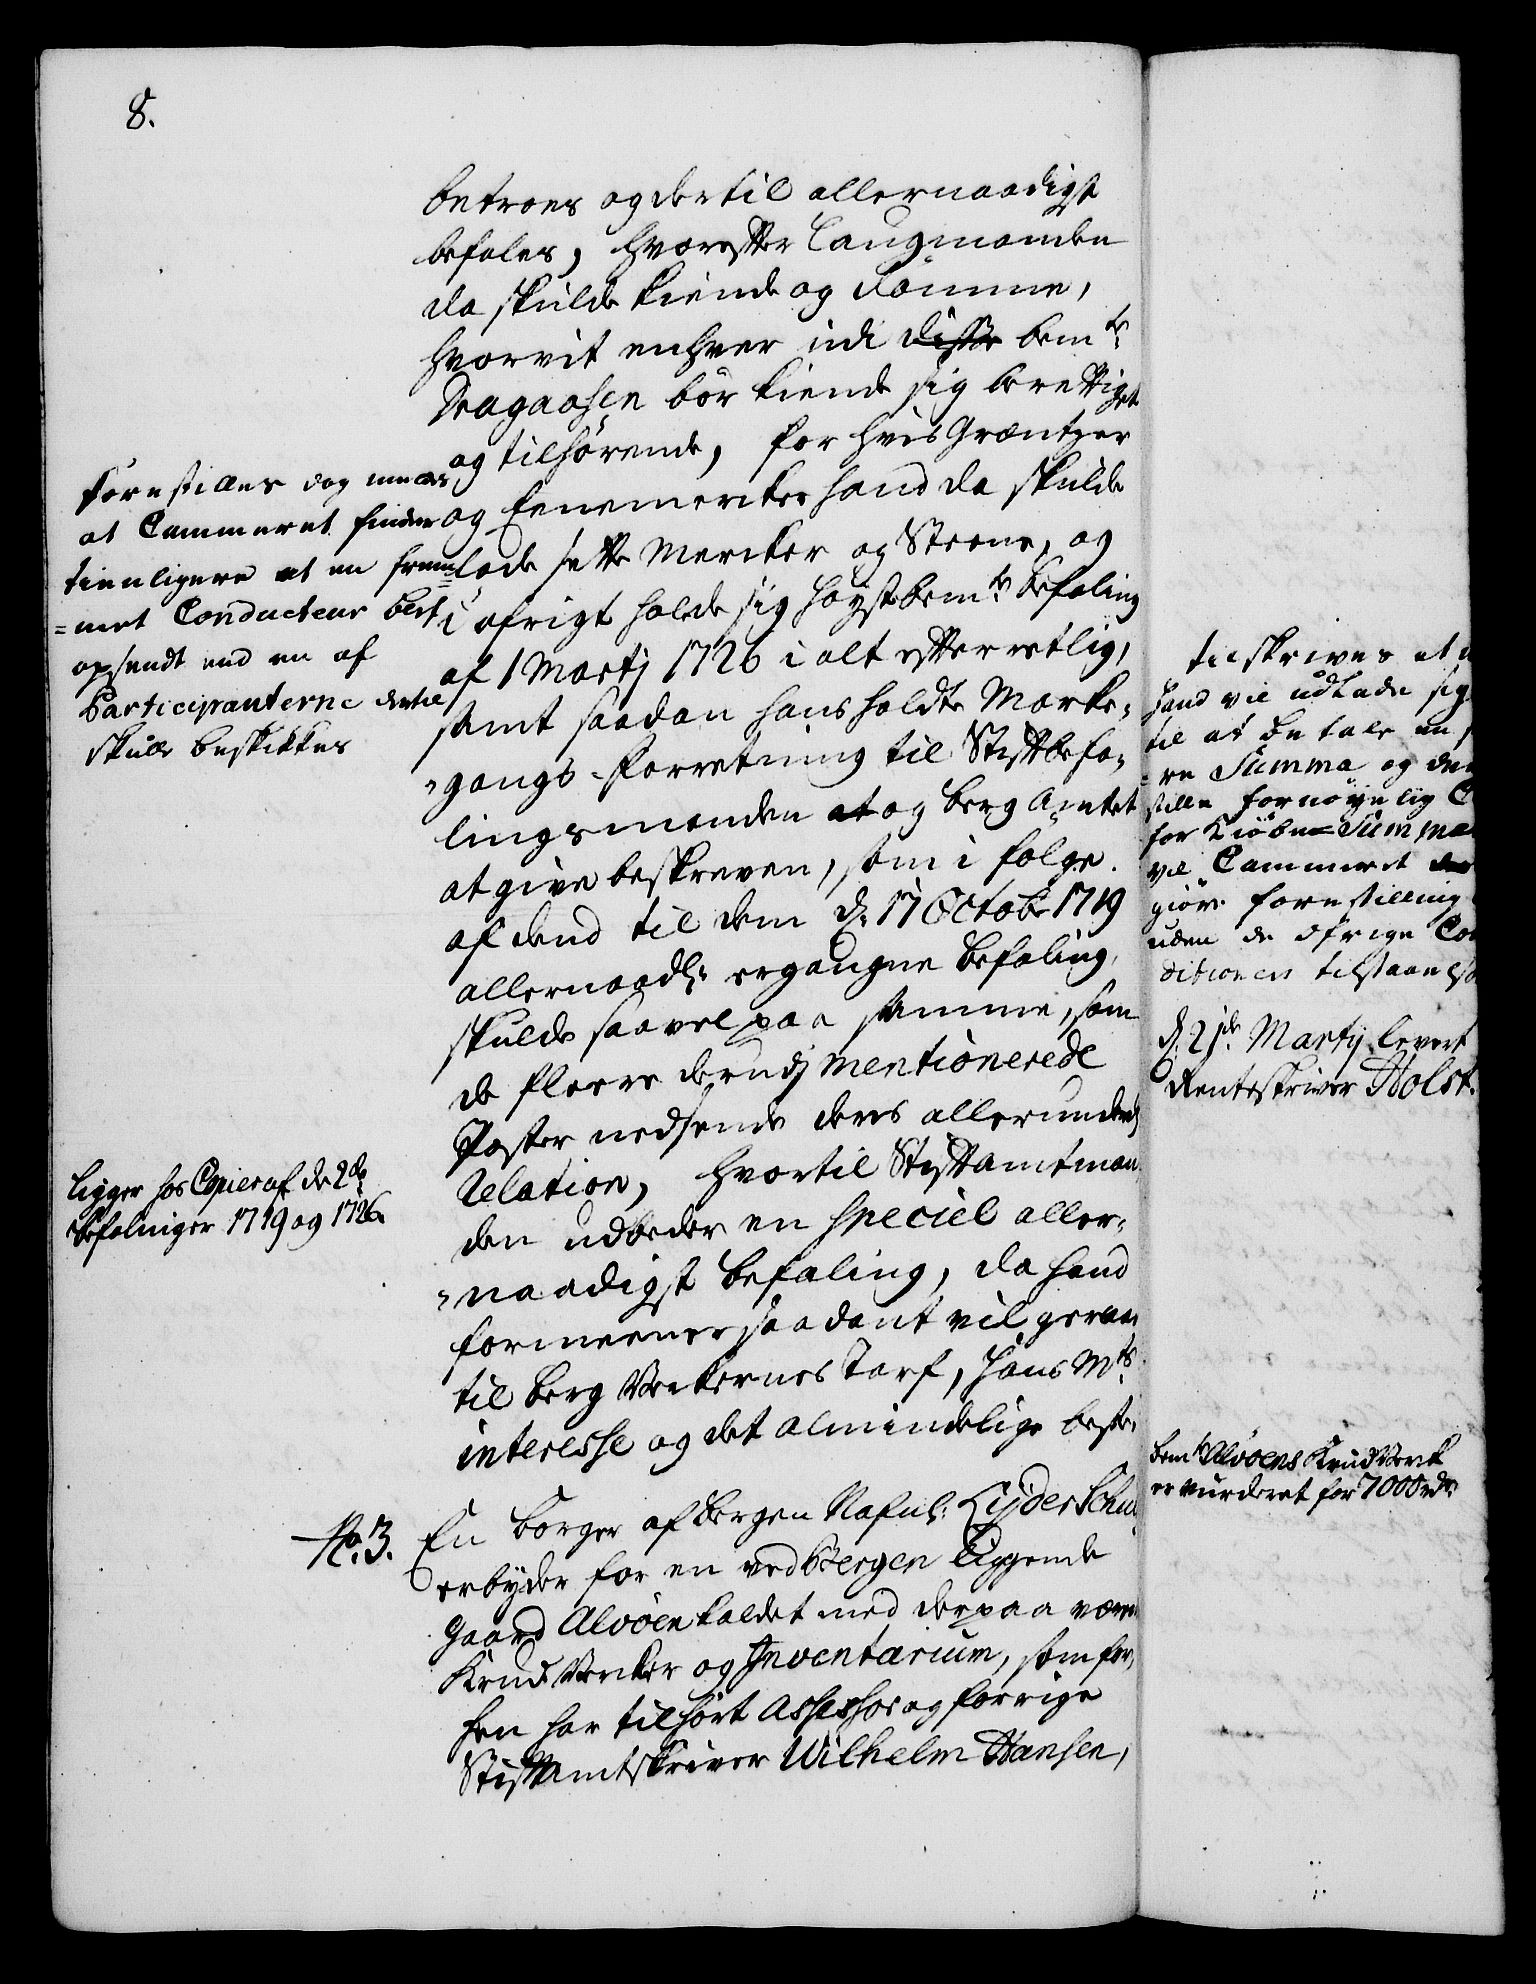 8.
betroes og dertil allernaadigst
befales, hvorefter Laugmanden
da skulde kiende og dømme,
hvorvit enhver udi disse bem.te
Dragaasen bør kiende sig berettiget
og tilhørende, for hvis Grentzer
og Eenemercker hand da skulde
lade sette Mercker og Steene, og
i øfrigt holde sig høystbem.te befaling
af 1 Martj 1726 i alt efterretlig,
samt saadan hans holdte Marke-
-gangs-forretning til Stiftbefa-
lingsmanden at og Berg Amtet
at give beskreven, som i følge
af dend til dem d. 17 Octobr 1719
allernaadl: ergangne befaling,
skulde saavel paa samme, som
de fleere derudj mentionerede
Poster nedsende deres allerunderd:
Relation, hvortil Stiftamtman-
den udbeder en speciel aller-
-naadigst befaling, da hand
formeener saadant vil geraa
til Berg Verkernes Tarf, Hans M.ts
interesse og det almindelige beste.
forestilles dog
at Cammeret finder
tienligere at en frem-
-met Conducteur
opsendt end en af
Participanterne dertil
skulle beskikkes
ligger hos Copier af de 2de
befalinger 1719 og 1726.
No. 3.
En borger af Bergen Nafnl: Lyder
erbyder for en ved Bergen liggende
gaard Alvøen kaldet med derpaa være
Krud Verker og Inventarium, som for
hen har tilhørt Assessor og forrige
Stiftamtskriver Wilhelm Hansen,
tilskrives at
hand vil udlade sig
til at betale en
re Summa og der
stille fornøyelig
for Kiøbe Summa
vil Cammeret
giøre forestilling
uden de øfrige Con
ditioners tilstaaelse
d. 21de Martij levert
Renteskriver Holst.
bem.te Alvøens Krudverk
er vurderet for 7000 rdr.